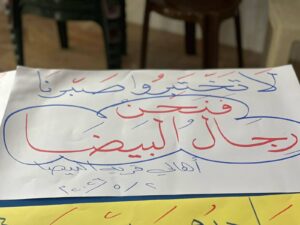 لا تختبروا صبرنا
فنحن
رجال البيضا
أهالي قرية البيضا